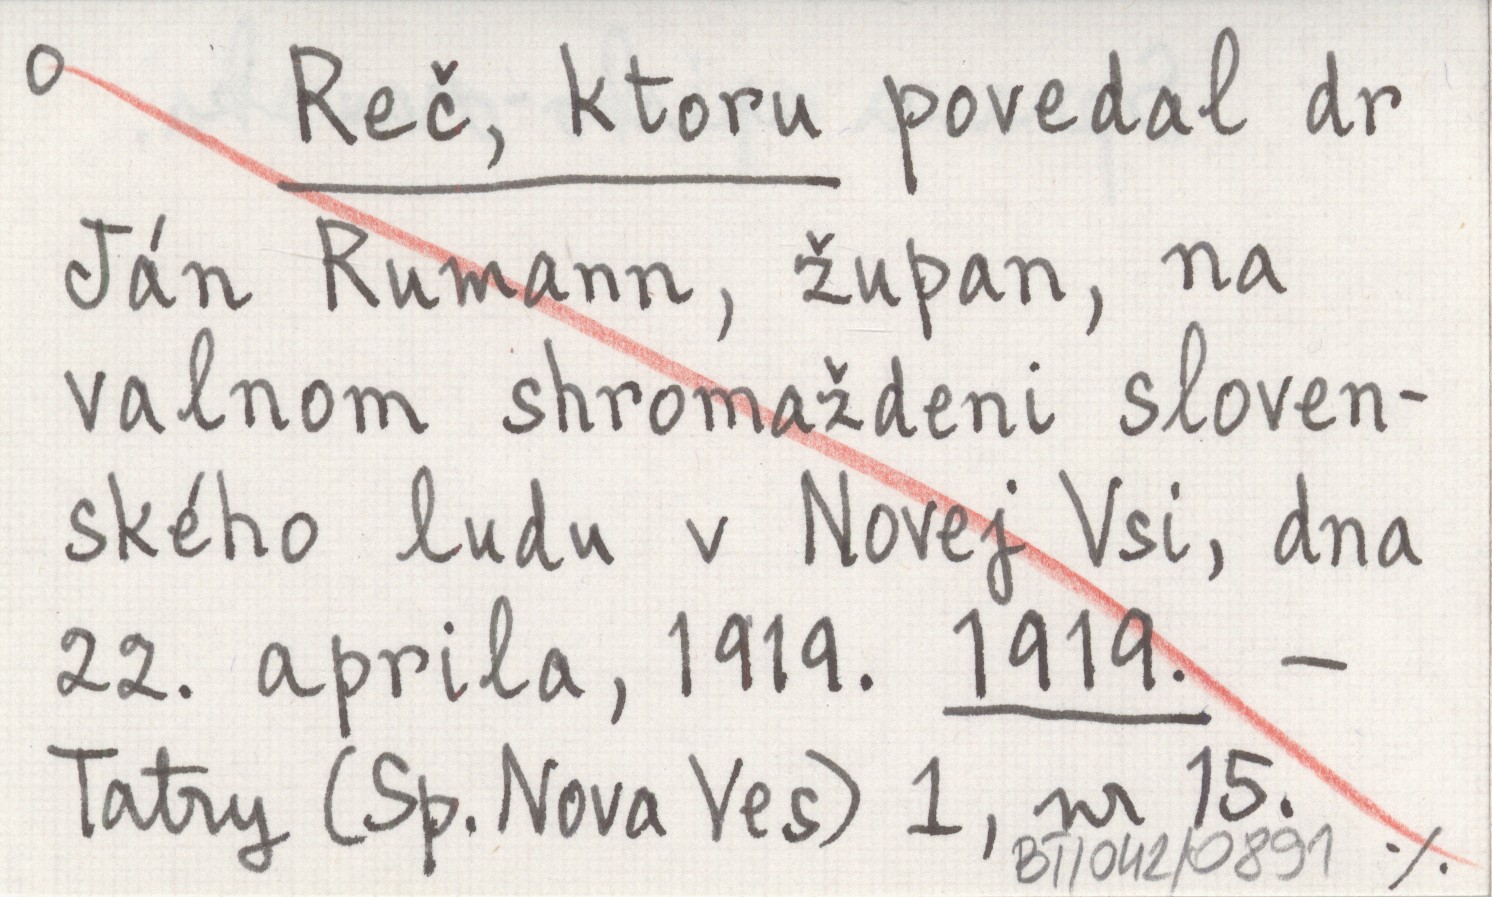 O Reč, ktoru povedal dr
Ján Rumann, župan, na
valnom shromaždeni sloven-
ského ludu v Novej Vsi, dna
22. aprila, 1919. 1919. —
Tatry (Sp. Nova Ves) 1, nr 15.
BT/042/0891 ./.